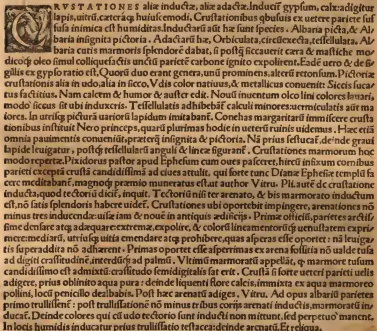 CRVSTATIONES aliæ inductæ, aliæ adactæ. Inducũt gypsum, calx: adigitur
lapis, uitrũ, cætera q; huiuscemodi. Crustationibus qbusuis ex uetere pariete suf
fusa inimica est humiditas. Inductarũ aũt hæ sunt species. Albaria picta, & Al
baria insignita pictoria. Adactarũ hæ. Orbiculata, circutexta, tessellata. Al
baria cutis marmoris splendorē dabat, si postq̃ siccauerit cæra & mastiche mo
dico q; oleo simul colliquefactis unctũ parietē carbone ignito expolirent. Eadē uero & de si
gillis ex gypso ratio est. Quorũ duo erant genera, unũ prominens, alterũ retonsum. Pictoriæ
crustationis alia in udo, alia in sicco. Vdis color natiuus, & metallicus conuenit. Siccis fuca
tus facticius. Nam calcem & humor & auster edit. Nouũ inuentum oleo lini colores linari,
modo siccus sit ubi induxeris. Tessellatis adhibebãt calculi minores: uermiculatis aũt ma
iores. In utrisq; picturã uariorũ lapidum imitabant. Conchas margaritarũ immiscere crusta
tionibus instituit Nero princeps, quarũ plurimas hodie in ueterũ ruinis uidemus. Hæc etiã
omnia pauimentis conueniũt, præterq̃ insignita & pictoris. Nã prius festucat, deinde graui
lapide leuigatur, postq̃ tessellatarũ anguli & lineæ figurant. Crustationes marmorum hoc
modo repertæ. Pixidorus pastor apud Ephesum cum oues pasceret, hircũ infixum cornibus
parieti exceptã crustã candidissimã ad ciues attulit, qui forte tunc Dianæ Ephesiæ templũ fa
cere meditabant, magnoq; præmio muneratus est autor Vitru. Pli. aũt de crustatione
inducta, quod tectoriũ dicim°, inquit. Tectoriũ nisi ter arenato, & bis marmorato inductum
est, nõ satis splendoris habere uidem°. Crustationes ubi oportebit impingere, arenationes nõ
minus tres inducendæ: uisæ iam & nouē in antiquis ædificijs. Primæ officiũ, parietes arctis
sime densare atq; adæquare: extremæ, expolire, & colorũ lineamentorũq; uenustatem exprī
mere: mediarũ, utriusq; uitia emendare atq; prohibere, quas asperas esse oportet: nã leuiga
tis superaddita nõ adhærent. Primas oportet esse asperrimas ex arena fossitia nõ ualde rasa
ad digiti crassitudinē, interdũq; ad palmũ. Vltimũ marmoratũ appellãt, q̃ marmore tusum
candidissimo est admixtũ: crassitudo semidigitalis sat erit. Crustã si forte ueteri parieti uelis
adigere, prius oblinito aqua pura: deinde liquenti flore calcis, immixta ex aqua marmoreo
pollini, locũ penicillo dealbabis. Post hæc arenatũ adiges. Vitru. Ad opus albariũ parietes
primo trullissent: post trullissationē nõ minus tribus corijs arenati inductis, marmoratũ in
ducãt. Deinde colores qui cũ udo tectorio sunt inducti non mittunt, sed perpetuo manent.
In locis humidis inducatur prius trullissatio testacea: deinde arenatũ. Et reliqua.